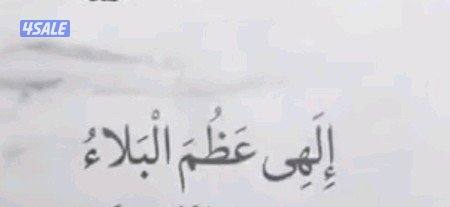 4SALE
إِلَهِي عَظُمَ الْبَلَاءُ